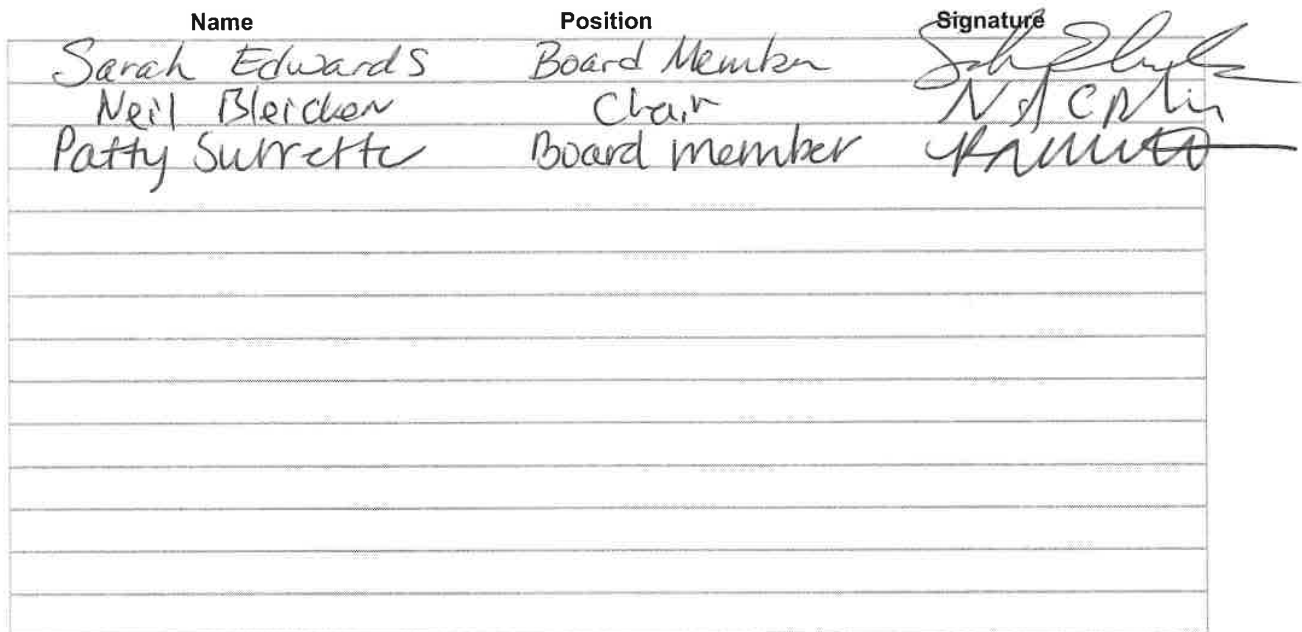 Name Position Signature
Sarah Edwards Board Member
Neil Bleicken Chair
Patty Surrette Board member